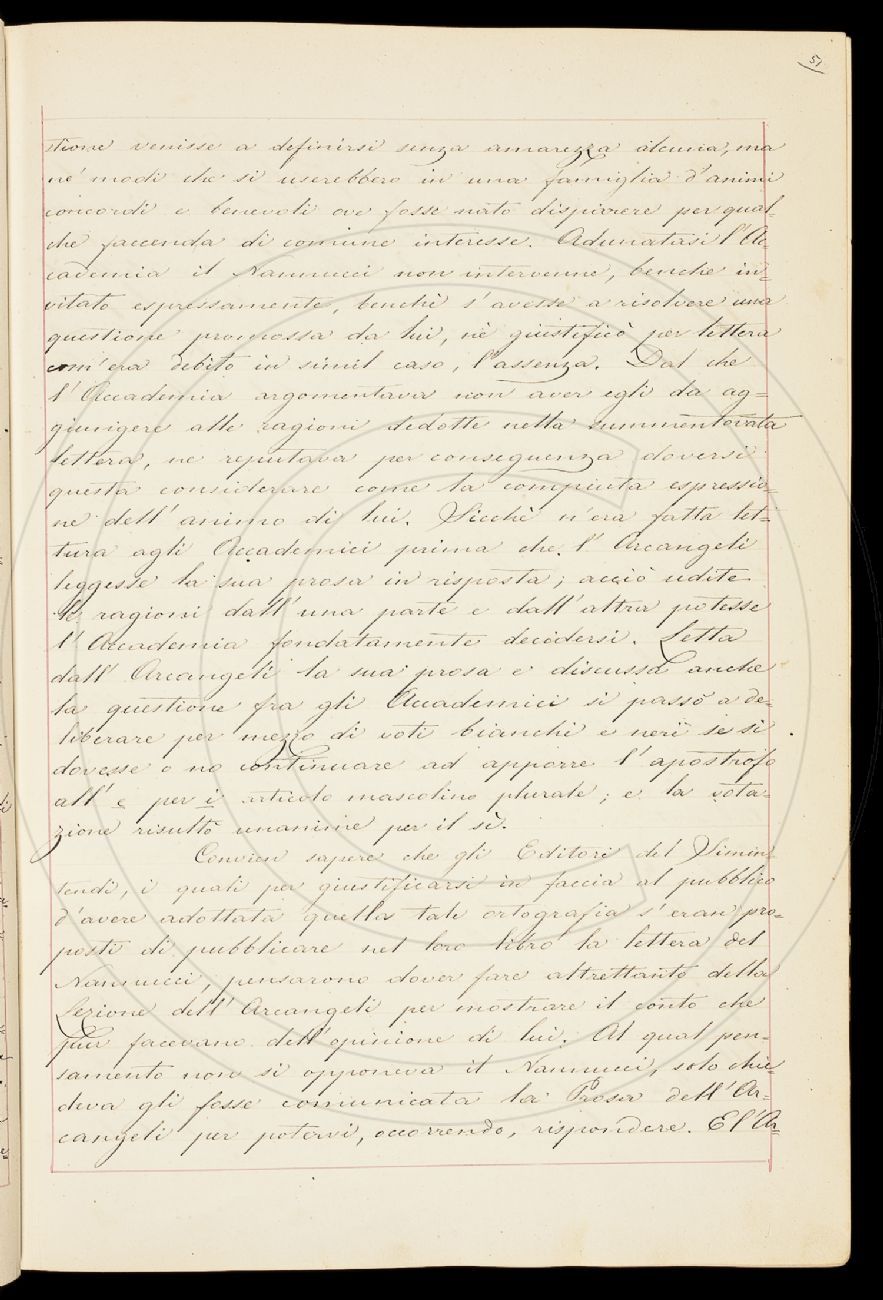 51
stione venisse a definirsi senza amarezza alcuna, ma
ne' modi che si userebbero in una famiglia d'animi
concordi e benevoli ove fosse nato dispiacere per qual-
che faccenda di comune interesse. Adunatasi l'Ac-
cademia il Nannucci non intervenne, benche in-
vitato espressamente, benchè s'avesse a risolvere una
questione promossa da lui, nè giustificò per lettera
com'era debito in simil caso, l'assenza. Dal che
l'Accademia argomentava non aver egli da ag-
giungere alle ragioni dedotte nella summentovata
lettera, ne reputava per conseguenza doversi
questa considerare come la compiuta espressio-
ne dell'animo di lui. Sicchè n'era fatta let-
tura agli Accademici prima che l'Arcangeli
leggesse la sua prosa in risposta; acciò udite
le ragioni dall'una parte e dall'altra potesse
l'Accademia fondatamente decidersi. Letta
dall'Arcangeli la sua prosa e discussa anche
la questione fra gli Accademici si passò a de-
liberare per mezzo di voti bianchi e neri se si
dovesse o no continuare ad apporre l'apostrofo
all'e per i articolo mascolino plurale; e la vota-
zione risultò unanime per il sì.
Convien sapere che gli Editori del Simin-
tendi, i quali per giustificarsi in faccia al pubblico
d'avere adottata quella tale ortografia s'eran pro-
posti di pubblicare nel loro libro la lettera del
Nannucci, pensarono dover fare altrettanto della
Lezione dell'Arcangeli per mostrare il conto che
pur facevano dell'opinione di lui. Al qual pen-
samento non si opponeva il Nannucci, solo chie-
deva gli fosse comunicata la Prosa dell'Ar-
cangeli per potervi, occorrendo, rispondere. E l'Ar-